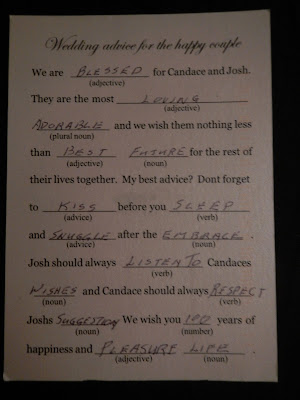 Wedding advice for the happy couple
We are BLESSED for Candace and Josh.
(adjective)
They are the most LOVING
(adjective)
ADORABLE and we wish them nothing less
(plural noun)
than BEST FUTURE for the rest of
(adjective) (noun)
their lives together. My best advice? Dont forget
to KISS before you SLEEP
(advice) (verb)
and SNUGGLE after the EMBRACE.
(advice) (noun)
Josh should always LISTEN TO Candaces
(verb)
WISHES and Candace should always RESPECT
(noun) (verb)
Joshs SUGGESTION We wish you 100 years of
(noun) (number)
happiness and PLEASURE LIFE
(adjective) (noun)